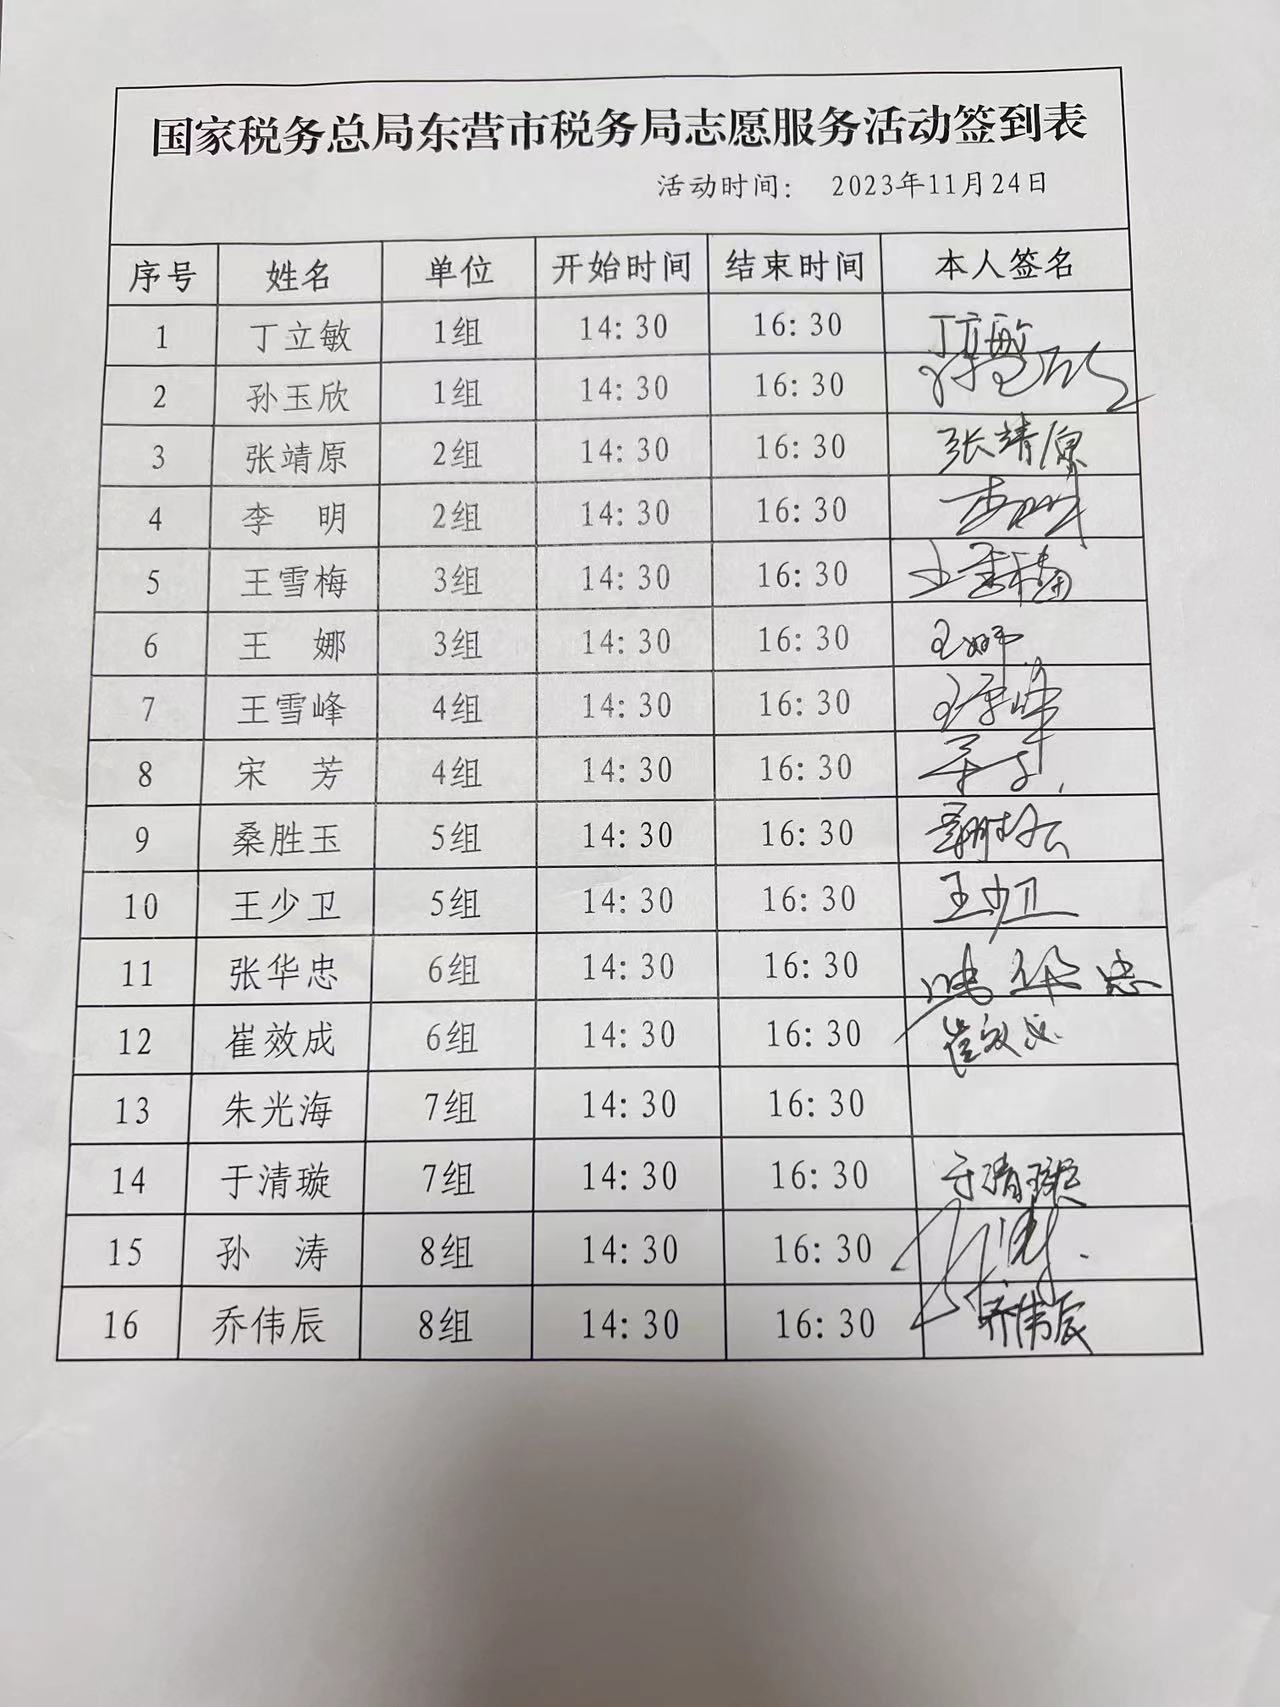 国家税务总局东营市税务局志愿服务活动签到表
活动时间： 2023年11月24日
序号 姓名 单位 开始时间 结束时间 本人签名
1 丁立敏 1组 14:30 16:30 丁立敏
2 孙玉欣 1组 14:30 16:30 孙玉欣
3 张靖原 2组 14:30 16:30 张靖原
4 李 明 2组 14:30 16:30 李明
5 王雪梅 3组 14:30 16:30 王雪梅
6 王 娜 3组 14:30 16:30 王娜
7 王雪峰 4组 14:30 16:30 王雪峰
8 宋 芳 4组 14:30 16:30 宋芳
9 桑胜玉 5组 14:30 16:30
10 王少卫 5组 14:30 16:30 王少卫
11 张华忠 6组 14:30 16:30 张华忠
12 崔效成 6组 14:30 16:30 崔效成
13 朱光海 7组 14:30 16:30
14 于清璇 7组 14:30 16:30 于清璇
15 孙 涛 8组 14:30 16:30 孙涛
16 乔伟辰 8组 14:30 16:30 乔伟辰